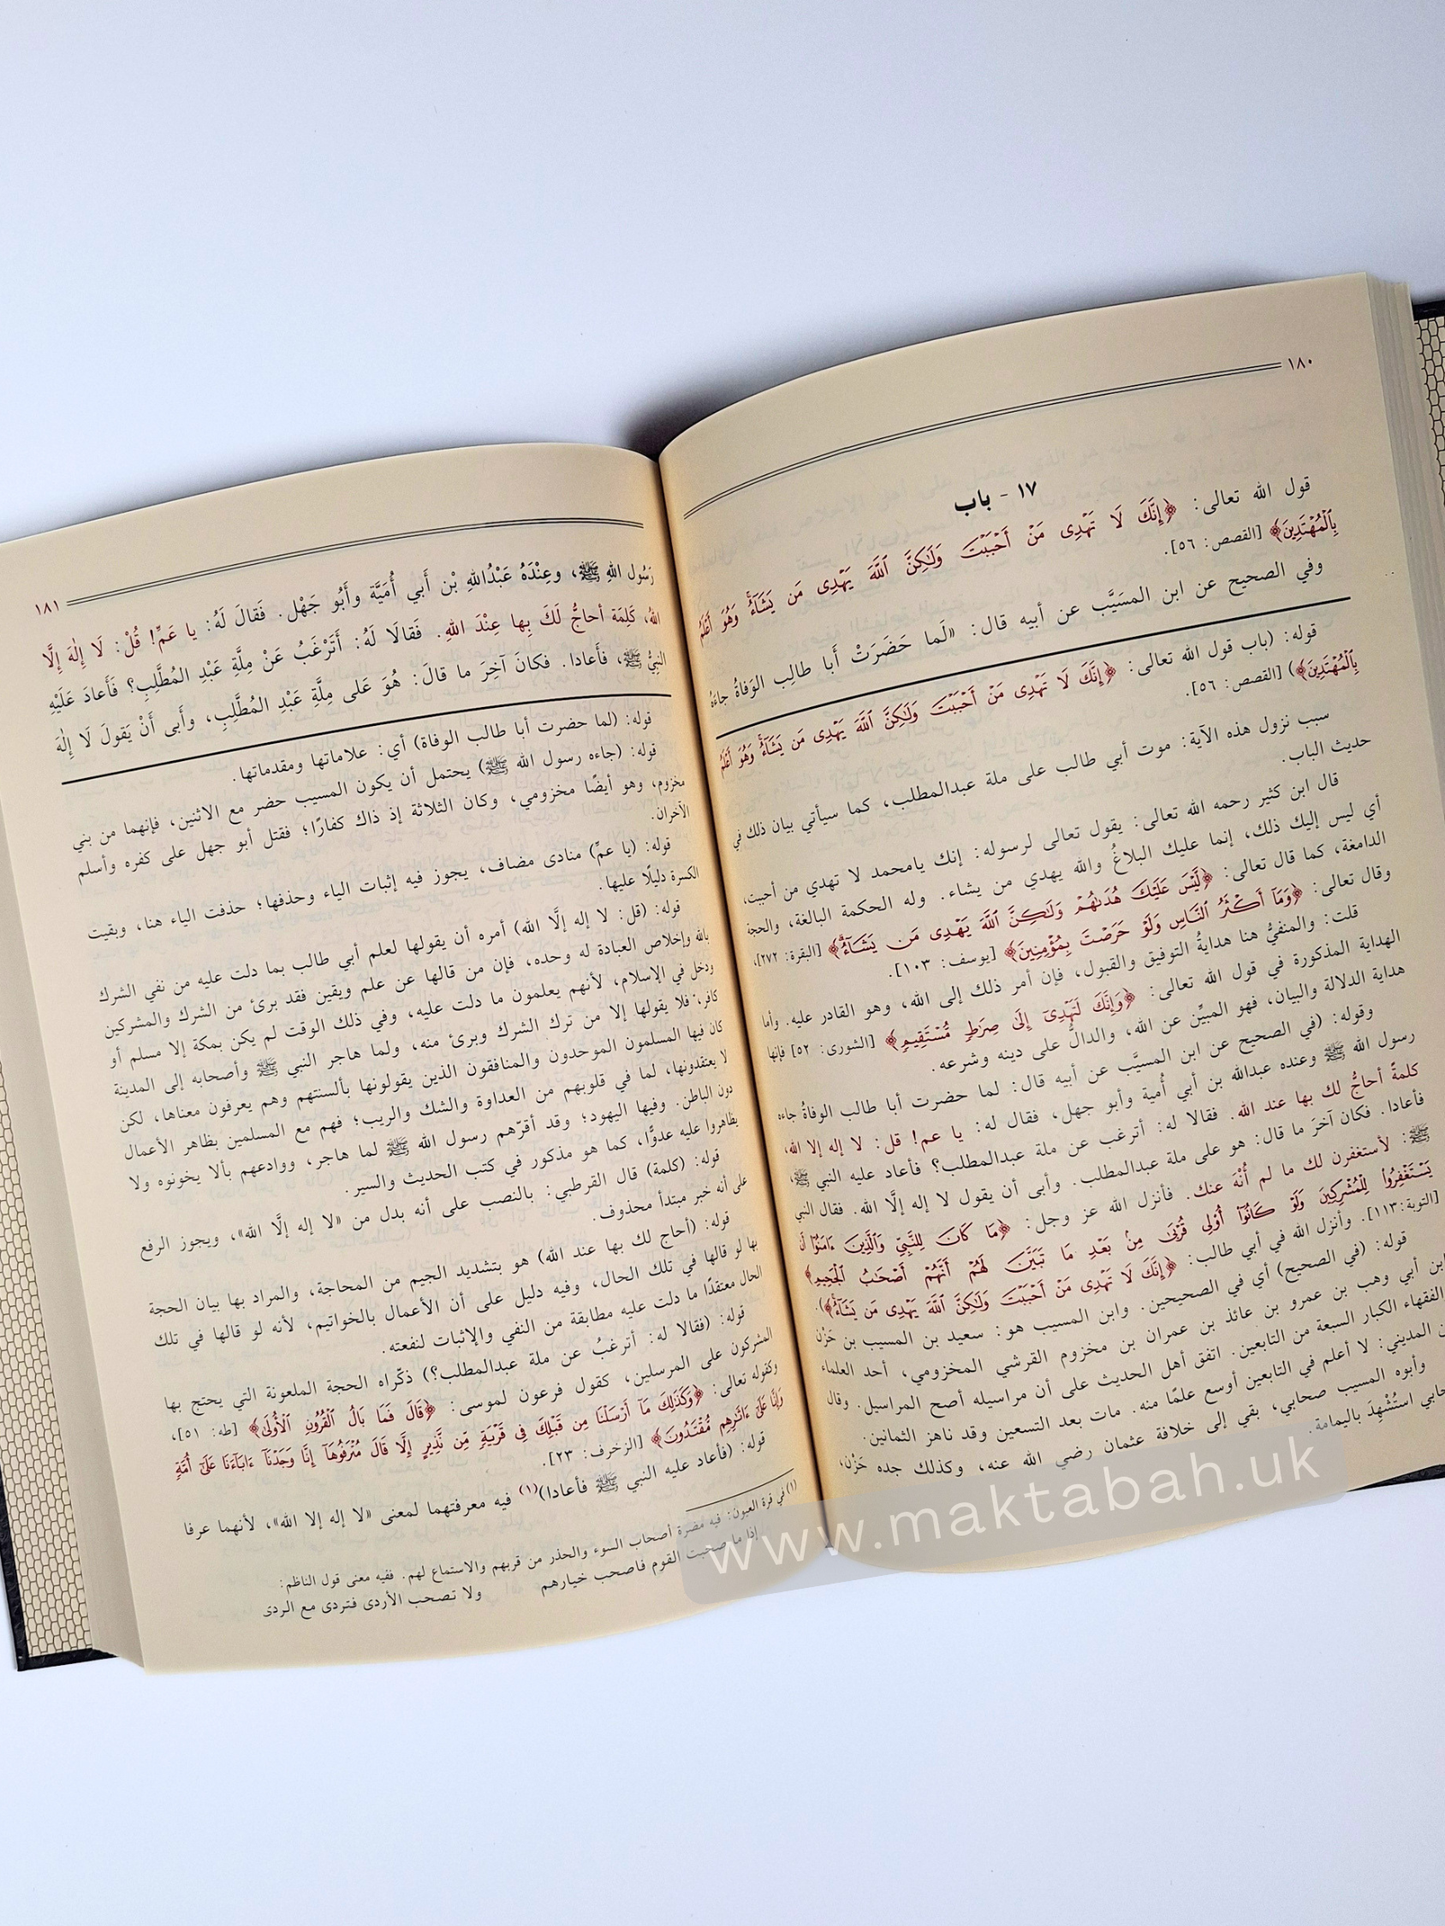 ١٨٠
١٧ - باب
قول الله تعالى: ﴿إِنَّكَ لَا تَهْدِى مَنْ أَحْبَبْتَ وَلَٰكِنَّ ٱللَّهَ يَهْدِى مَن يَشَآءُ وَهُوَ أَعْلَمُ
بِٱلْمُهْتَدِينَ﴾ [القصص: ٥٦].
وفي الصحيح عن ابن المسَيَّب عن أبيه قال: «لَما حَضَرَتْ أَبا طالِب الوَفاةُ جاءَهُ
قوله: (باب قول الله تعالى: ﴿إِنَّكَ لَا تَهْدِى مَنْ أَحْبَبْتَ وَلَٰكِنَّ ٱللَّهَ يَهْدِى مَن يَشَآءُ وَهُوَ أَعْلَمُ
بِٱلْمُهْتَدِينَ﴾) [القصص: ٥٦].
سبب نزول هذه الآية: موت أبي طالب على ملة عبدالمطلب، كما سيأتي بيان ذلك في
حديث الباب.
قال ابن كثير رحمه الله تعالى: يقول تعالى لرسوله: إنك يامحمد لا تهدي من أحببت،
أي ليس إليك ذلك، إنما عليك البلاغُ والله يهدي من يشاء. وله الحكمة البالغة، والحجة
الدامغة، كما قال تعالى: ﴿لَيْسَ عَلَيْكَ هُدَىٰهُمْ وَلَٰكِنَّ ٱللَّهَ يَهْدِى مَن يَشَآءُ﴾ [البقرة: ٢٧٢]،
وقال تعالى: ﴿وَمَآ أَكْثَرُ ٱلنَّاسِ وَلَوْ حَرَصْتَ بِمُؤْمِنِينَ﴾ [يوسف: ١٠٣].
قلت: والمنفيُّ هنا هدايةُ التوفيق والقبول، فإن أمر ذلك إلى الله، وهو القادر عليه. وأما
الهداية المذكورة في قول الله تعالى: ﴿وَإِنَّكَ لَتَهْدِىٓ إِلَىٰ صِرَٰطٍ مُّسْتَقِيمٍ﴾ [الشورى: ٥٢] فإنها
هداية الدلالة والبيان، فهو المبيِّن عن الله، والدالُّ على دينه وشرعه.
وقوله: (في الصحيح عن ابن المسيَّب عن أبيه قال: لما حضرت أبا طالب الوفاةُ جاءه
رسول الله ﷺ وعنده عبدالله بن أبي أمية وأبو جهل، فقال له: يا عم! قل: لا إله إلا الله،
كلمةً أحاجُّ لك بها عند الله. فقالا له: أترغب عن ملة عبدالمطلب؟ فأعاد عليه النبي ﷺ،
فأعادا. فكان آخرَ ما قال: هو على ملة عبدالمطلب. وأبى أن يقول لا إله إلَّا الله. فقال النبي
ﷺ: لأستغفرن لك ما لم أُنْهَ عنك. فأنزل الله عز وجل: ﴿مَا كَانَ لِلنَّبِيِّ وَٱلَّذِينَ ءَامَنُوٓا۟ أَن
يَسْتَغْفِرُوا۟ لِلْمُشْرِكِينَ وَلَوْ كَانُوٓا۟ أُو۟لِى قُرْبَىٰ مِنۢ بَعْدِ مَا تَبَيَّنَ لَهُمْ أَنَّهُمْ أَصْحَٰبُ ٱلْجَحِيمِ﴾
[التوبة:١١٣]. وأنزل الله في أبي طالب: ﴿إِنَّكَ لَا تَهْدِى مَنْ أَحْبَبْتَ وَلَٰكِنَّ ٱللَّهَ يَهْدِى مَن يَشَآءُ﴾).
قوله: (في الصحيح) أي في الصحيحين. وابن المسيب هو: سعيد بن المسيب بن حَزْن
بن أبي وهب بن عمرو بن عائذ بن عمران بن مخزوم القرشي المخزومي، أحد العلماء
الفقهاء الكبار السبعة من التابعين. اتفق أهل الحديث على أن مراسيله أصح المراسيل. وقال
المديني: لا أعلم في التابعين أوسع علمًا منه. مات بعد التسعين وقد ناهز الثمانين.
وأبوه المسيب صحابي، بقي إلى خلافة عثمان رضي الله عنه، وكذلك جده حَزْن،
استُشْهِدَ باليمامة.
١٨١
رَسُول اللهِ ﷺ، وعِنْدَهُ عَبْدُاللهِ بْن أَبي أُمَيَّة وأَبُو جَهْل. فَقالَ لَهُ: يا عَمِّ! قُلْ: لَا إِلٰهَ إِلَّا
اللهُ، كَلِمَة أحاجُّ لَكَ بِها عِنْدَ اللهِ. فَقالَا لَهُ: أَتَرْغَبُ عَنْ مِلَّةِ عَبْدِ المُطَّلِبِ؟ فَأَعادَ عَلَيْهِ
النَبِيُّ ﷺ، فَأَعادا. فكانَ آخِرَ ما قالَ: هُوَ عَلى مِلَّةِ عَبْدِ المُطَّلِبِ، وأَبى أَنْ يَقولَ لَا إِلٰهَ
قوله: (لما حضرت أبا طالب الوفاة) أي: علاماتها ومقدماتها.
قوله: (جاءه رسول الله ﷺ) يحتمل أن يكون المسيب حضر مع الاثنين، فإنهما من بني
مخزوم، وهو أيضًا مخزومي، وكان الثلاثة إذ ذاك كفارًا؛ فقتل أبو جهل على كفره وأسلم
الآخران.
قوله: (يا عمِّ) منادى مضاف، يجوز فيه إثبات الياء وحذفها؛ حذفت الياء هنا، وبقيت
الكسرة دليلًا عليها.
قوله: (قل: لا إله إلَّا الله) أمره أن يقولها لعلم أبي طالب بما دلت عليه من نفي الشرك
بالله وإخلاص العبادة له وحده، فإن من قالها عن علم ويقين فقد برئ من الشرك والمشركين
ودخل في الإسلام، لأنهم يعلمون ما دلت عليه، وفي ذلك الوقت لم يكن بمكة إلا مسلم أو
كافر، فلا يقولها إلا من ترك الشرك وبرئ منه، ولما هاجر النبي ﷺ وأصحابه إلى المدينة
كان فيها المسلمون الموحدون والمنافقون الذين يقولونها بألسنتهم وهم يعرفون معناها، لكن
لا يعتقدونها، لما في قلوبهم من العداوة والشك والريب؛ فهم مع المسلمين بظاهر الأعمال
دون الباطن. وفيها اليهود؛ وقد أقرّهم رسول الله ﷺ لما هاجر، ووادعهم بألا يخونوه ولا
يظاهروا عليه عدوًّا، كما هو مذكور في كتب الحديث والسير.
قوله: (كلمة) قال القرطبي: بالنصب على أنه بدل من «لا إله إلَّا الله»، ويجوز الرفع
على أنه خبر مبتدأ محذوف.
قوله: (أحاج لك بها عند الله) هو بتشديد الجيم من المحاجة، والمراد بها بيان الحجة
بها لو قالها في تلك الحال، وفيه دليل على أن الأعمال بالخواتيم، لأنه لو قالها في تلك
الحال معتقدًا ما دلت عليه مطابقة من النفي والإثبات لنفعته.
قوله: (فقالا له: أترغبُ عن ملة عبدالمطلب؟) ذكّراه الحجة الملعونة التي يحتج بها
المشركون على المرسلين، كقول فرعون لموسى: ﴿قَالَ فَمَا بَالُ ٱلْقُرُونِ ٱلْأُولَىٰ﴾ [طه: ٥١]،
وكقوله تعالى: ﴿وَكَذَٰلِكَ مَآ أَرْسَلْنَا مِن قَبْلِكَ فِى قَرْيَةٍ مِّن نَّذِيرٍ إِلَّا قَالَ مُتْرَفُوهَآ إِنَّا وَجَدْنَآ ءَابَآءَنَا عَلَىٰٓ أُمَّةٍ
وَإِنَّا عَلَىٰٓ ءَاثَٰرِهِم مُّقْتَدُونَ﴾ [الزخرف: ٢٣].
قوله: (فأعاد عليه النبي ﷺ فأعادا)(١) فيه معرفتهما لمعنى «لا إله إلا الله»، لأنهما عرفا
(١) في قرة العيون: فيه مضرة أصحاب السوء والحذر من قربهم والاستماع لهم. ففيه معنى قول الناظم:
إذا ما صحبت القوم فاصحب خيارهم ولا تصحب الأردى فتردى مع الردى
www.maktabah.uk